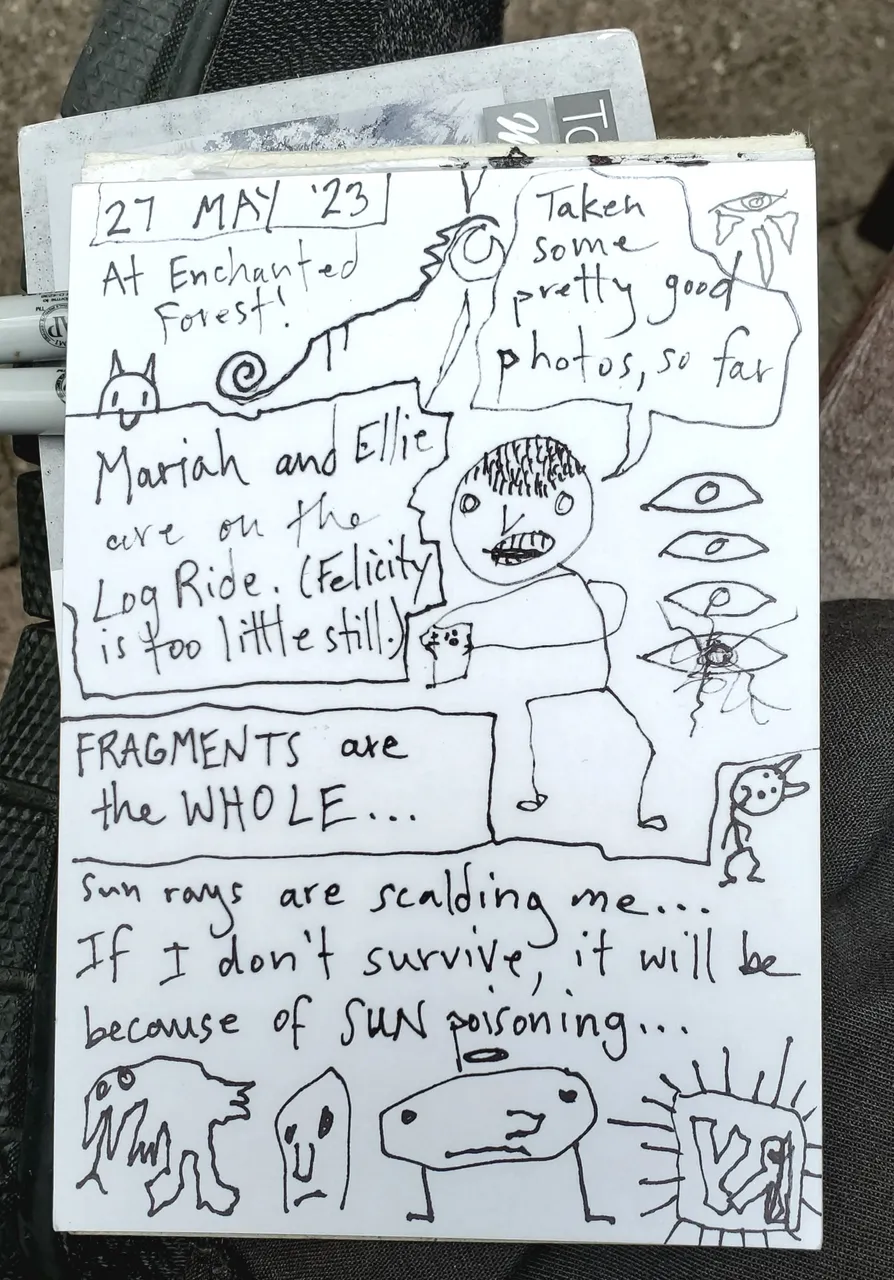 27 MAY '23
At Enchanted
Forest!
Taken
some
pretty good
photos, so far
Mariah and Ellie
are on the
Log Ride. (Felicity
is too little still.)
FRAGMENTS are
the WHOLE...
Sun rays are scalding me...
If I don't survive, it will be
because of SUN poisoning...